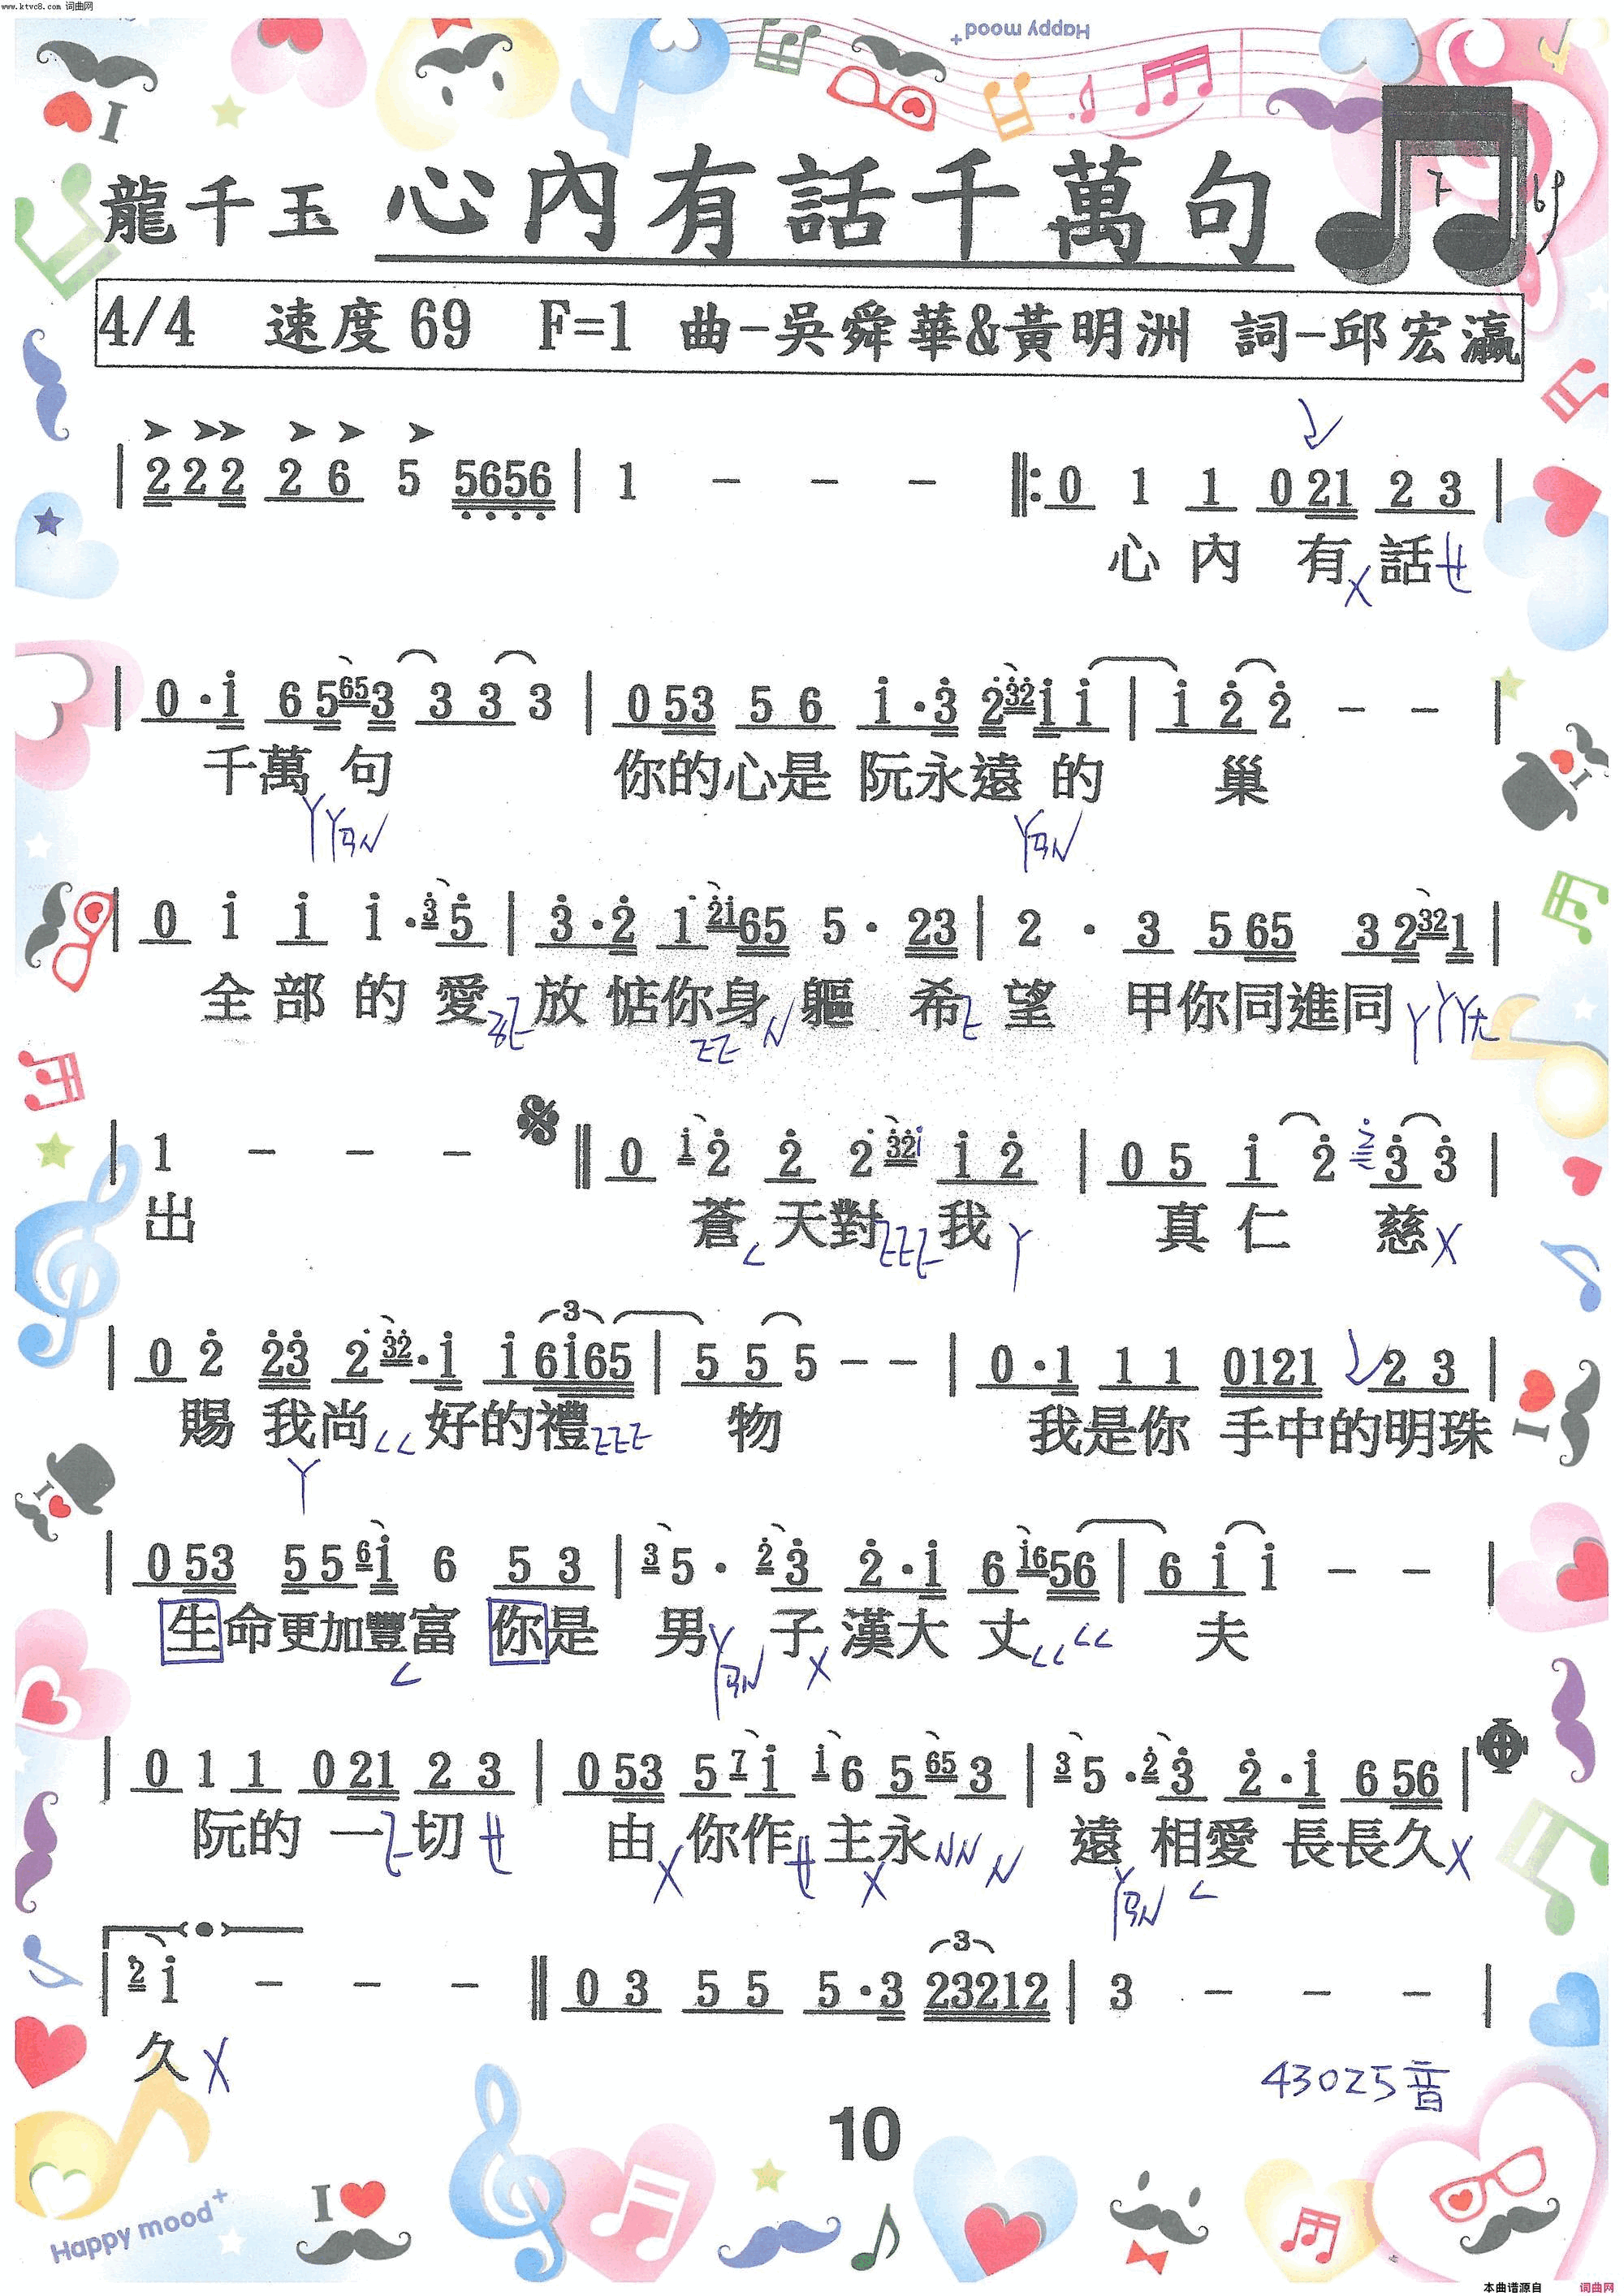 www.ktvc8.com 词曲网
Happy mood+
I
龍千玉 心內有話千萬句
4/4 速度69 F=1 曲-吳舜華&黃明洲 詞-邱宏瀛
| 222 26 5 5656 | 1 - - - ‖: 0 1 1 021 23 |
心內有話
| 0·1 65 653 33 3 | 053 56 1·3 2321 1 | 1 2 2 - - |
千萬句 你的心是阮永遠的 巢
| 0 1 1 1·35 | 3·2 1 2165 5·23 | 2·3 565 32321 |
全部的愛 放惦你身軀 希望 甲你同進同
| 1 - - - ‖ 0 12 2 2 32 12 | 05 1 2 3 3 |
出 蒼天對我 真仁慈
| 0 2 23 2 32·1 1 6165 | 5 5 5 - - | 0·1 11 0121 23 |
賜我尚好的禮 物 我是你手中的明珠
| 053 55 61 6 53 | 35·23 2·1 6 1656 | 6 1 1 - - |
生命更加豐富你是 男子漢大丈 夫
| 0 1 1 021 23 | 053 571 16 5 653 | 35·23 2·1 656 |
阮的一切 由你作主永 遠相愛長長久
| 21 - - - ‖ 03 55 5·3 23212 | 3 - - - |
久
43025音
10
Happy mood+
I
本曲谱源自 词曲网